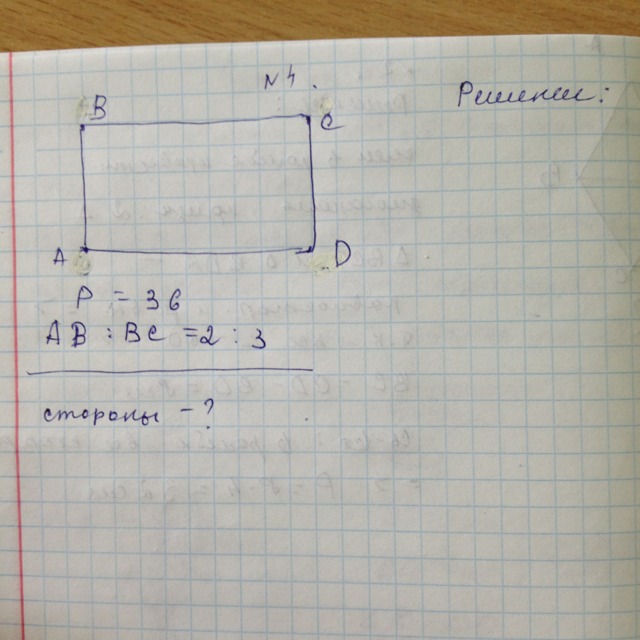 N4.
Решение:
B
C
A
D
P = 36
AB : BC = 2 : 3
стороны - ?